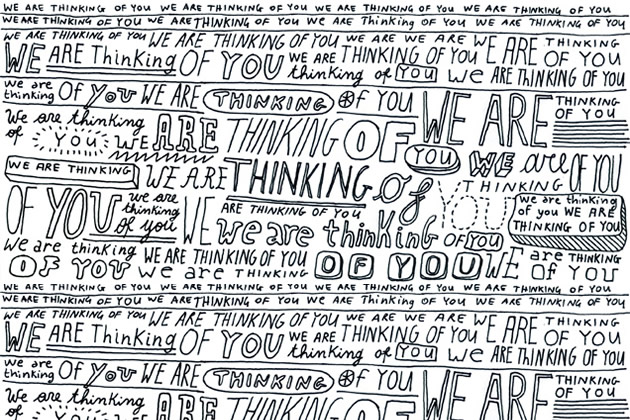 WE ARE THINKING OF YOU WE ARE THINKING OF YOU WE ARE THINKING OF YOU WE ARE THINKING OF YOU
WE ARE THINKING OF YOU WE ARE THINKING OF YOU We ARE Thinking OF YOU WE ARE THINKING OF YOU
WE ARE THINKING OF YOU WE ARE THINKING OF YOU WE ARE WE ARE WE ARE THINKING
WE ARE ThinKing OF YOU WE ARE THINKING OF YOU OF YOU
thinking of YOU We ARE THINKING OF YOU
we are thinking OF YoU WE ARE THINKING OF YOU WE ARE THINKING OF YOU
We are thinking of YOU WE ARE THINKING OF YOU WE are OF YOU
WE ARE THINKING WE ARE THINKING of YOU THINKING
OF YOU we are thinking of you WE ARE THINKING OF YOU we are thinKing OF YOU we are thinking of you WE ARE THINKING OF YOU
We are thinking OF YOU WE ARE THINKING OF YOU we are THINKING OF YOU WE are THINKING OF YOU
WE ARE THINKING OF YOU WE ARE THINKING OF YOU WE ARE THINKING OF YOU WE ARE THINKING OF YOU
WE ARE THINKING OF YOU WE ARE THINKING OF YOU We ARE Thinking OF YOU WE ARE THINKING OF YOU
WE ARE THINKING OF YOU WE ARE THINKING OF YOU WE ARE WE ARE WE ARE THINKING
WE ARE ThinKing OF YOU WE ARE THINKING OF YOU OF YOU
thinking of YOU We ARE THINKING OF YOU
we are thinking OF YoU WE ARE THINKING OF YOU WE ARE THINKING OF YOU
We are thinking of YOU ARE THINKING OF